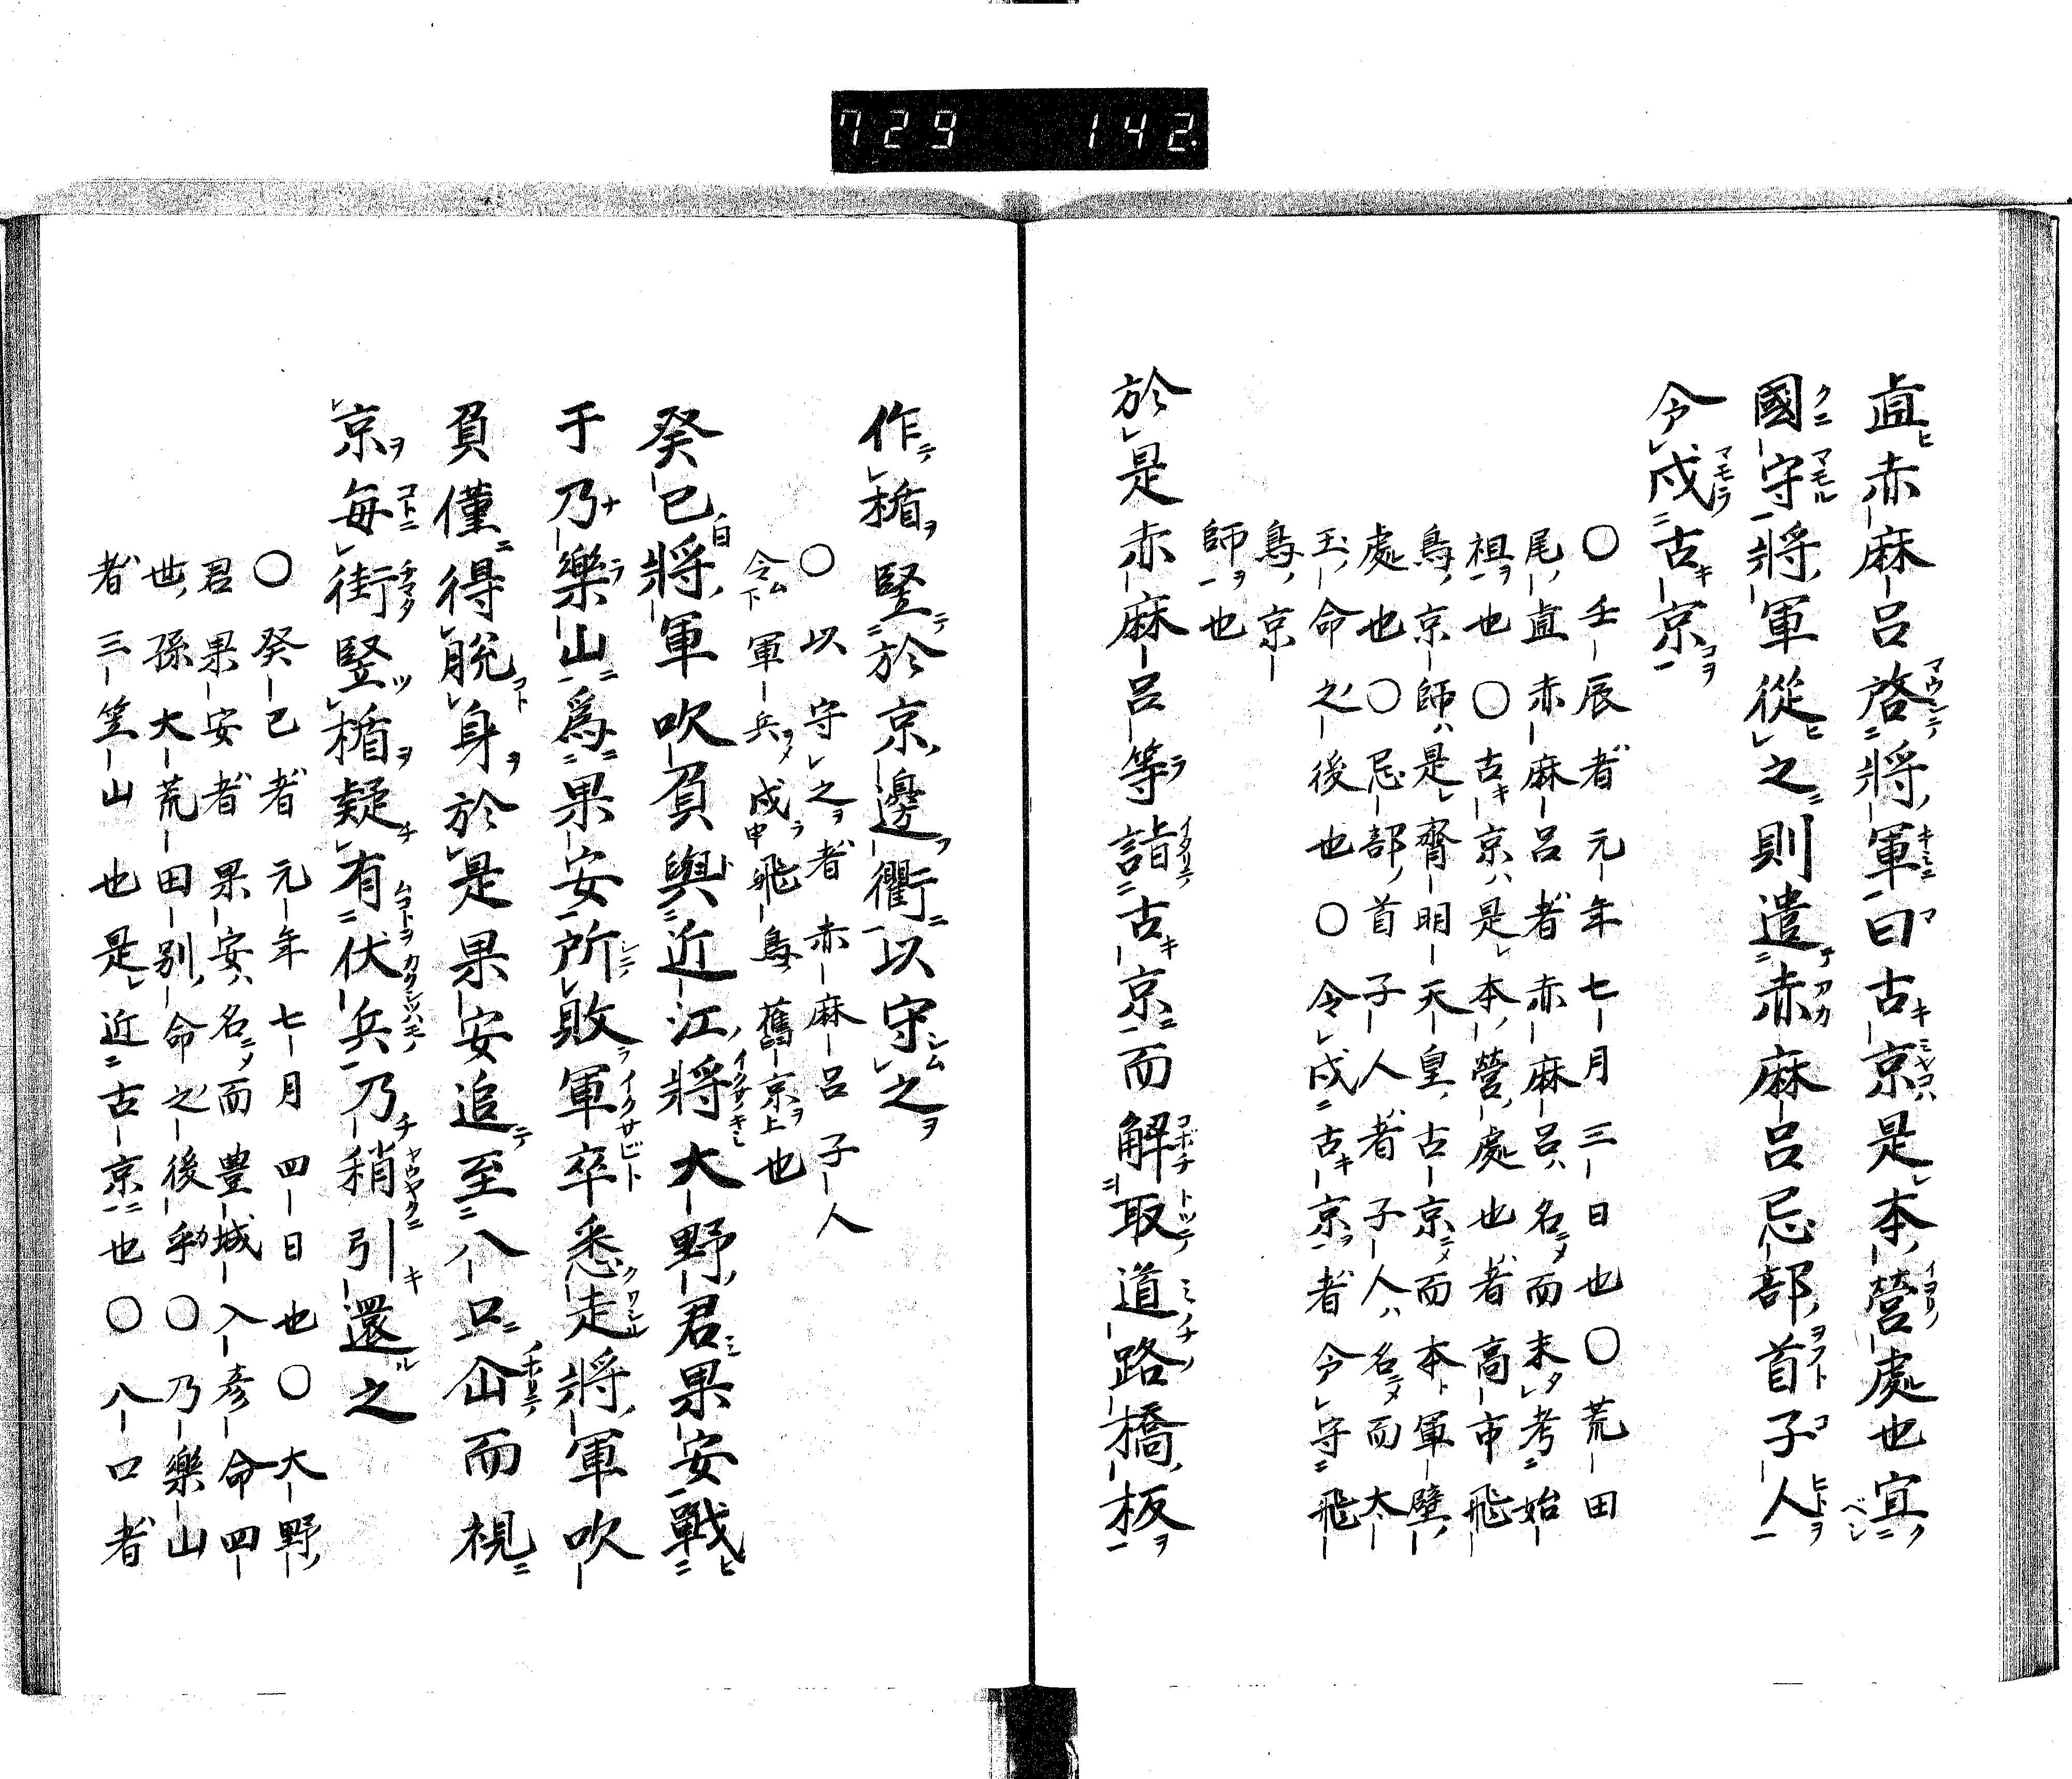 729 142.
直赤麻呂啓將軍曰古京是本營處也宜
國守將軍從之則遣赤麻呂忌部首子人
令戍古京
○壬辰者元年七月三日也○荒田
尾直赤麻呂者赤麻呂名而未考始
祖也○古京是本營處也者高市飛
鳥京師是齊明天皇古京而本軍壁
處也○忌部首子人者子人名而太
玉命之後也○令戍古京者令守飛
鳥京
師也
於是赤麻呂等詣古京而解取道路橋板
作楯竪於京邊衢以守之
○以守之者赤麻呂子人
令軍兵戍飛鳥舊京也
癸巳將軍吹負與近江將大野君果安戰
于乃樂山爲果安所敗軍卒悉走將軍吹
負僅得脱身於是果安追至八口仚而視
京毎街竪楯疑有伏兵乃稍引還之
○癸巳者元年七月四日也○大野
君果安者果安名而豊城入彦命四
世孫大荒田別命之後乎○乃樂山
者三笠山也是近古京也○八口者